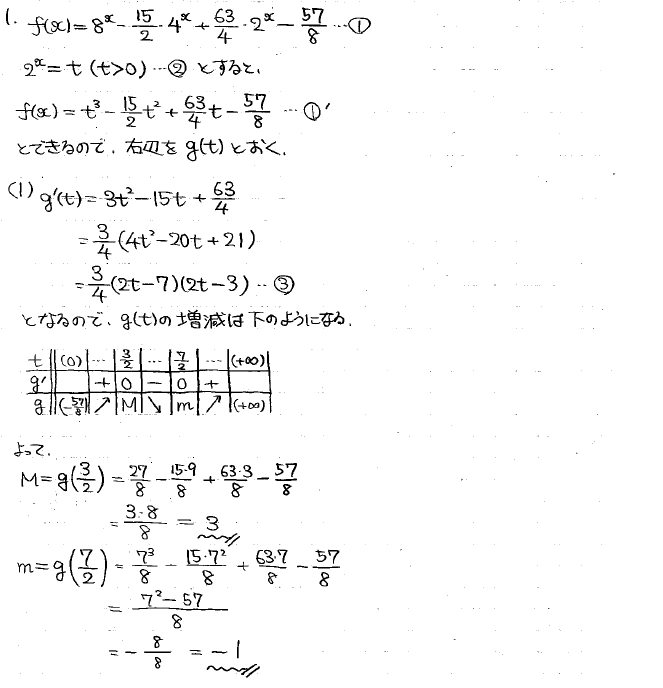 1. f(x)=8^x-15/2・4^x+63/4・2^x-57/8 …①
2^x=t (t>0) …② とすると、
f(x)=t³-15/2t²+63/4t-57/8 …①'
とできるので、右辺をg(t)とおく.
(1) g'(t)=3t²-15t+63/4
=3/4(4t²-20t+21)
=3/4(2t-7)(2t-3) …③
となるので、g(t)の増減は下のようになる.
t (0) … 3/2 … 7/2 … (+∞)
g' + 0 - 0 +
g (-57/8) ↗ M ↘ m ↗ (+∞)
よって、
M=g(3/2)=27/8-15・9/8+63・3/8-57/8
=3・8/8=3
m=g(7/2)=7³/8-15・7²/8+63・7/8-57/8
=7²-57/8
=-8/8=-1